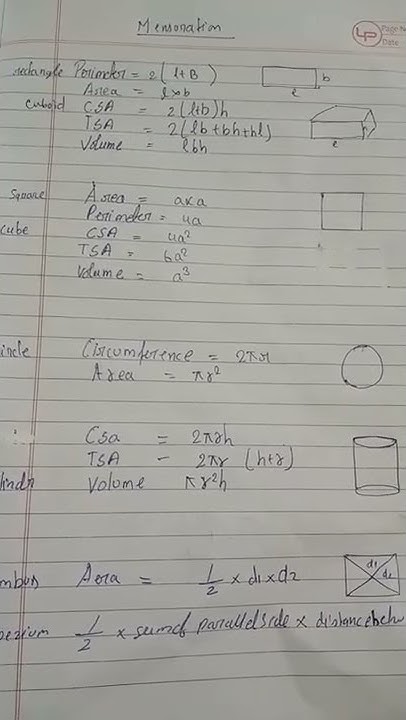 Mensoration
LP Page No
Date
rectangle Perimeter = 2(l+B)
Area = l×b
b
l
cuboid CSA = 2(l+b)h
TSA = 2(lb+bh+hl)
Volume = lbh
l
Square Area = axa
Perimeter = 4a
cube CSA = 4a²
TSA = 6a²
Volume = a³
incle Circumference = 2πr
Area = πr²
Csa = 2πrh
TSA = 2πr (h+r)
lindr Volume πr²h
mbus Area = 1/2 × d1 × d2
d1
d2
pezium 1/2 × sum of parallel side ×